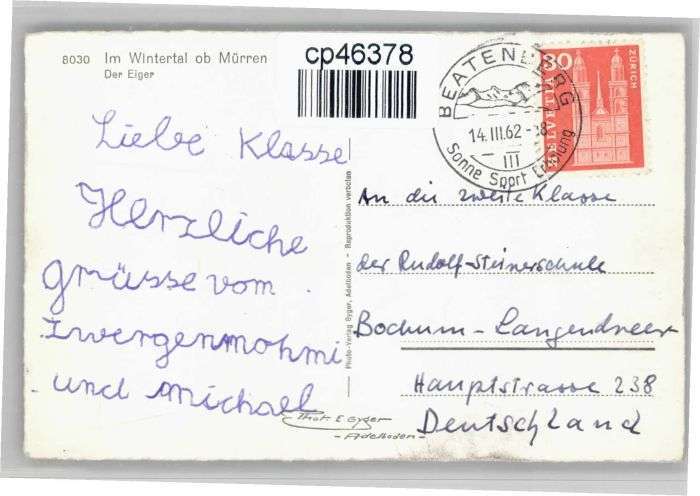 8030 Im Wintertal ob Mürren
Der Eiger
cp46378
BEATENBERG
14.III.62-18
III
Sonne Sport Erholung
30
HELVETIA
ZÜRICH
Liebe Klasse
Herzliche
grüsse vom
zwergenmohmi
und Michael
Photo-Verlag Gyger, Adelboden - Reproduktion verboten
An die zweite Klasse
der Rudolf-Steinerschule
Bochum-Langendreer
Hauptstrasse 238
Deutschland
Phot E Gyger
-Adelboden-